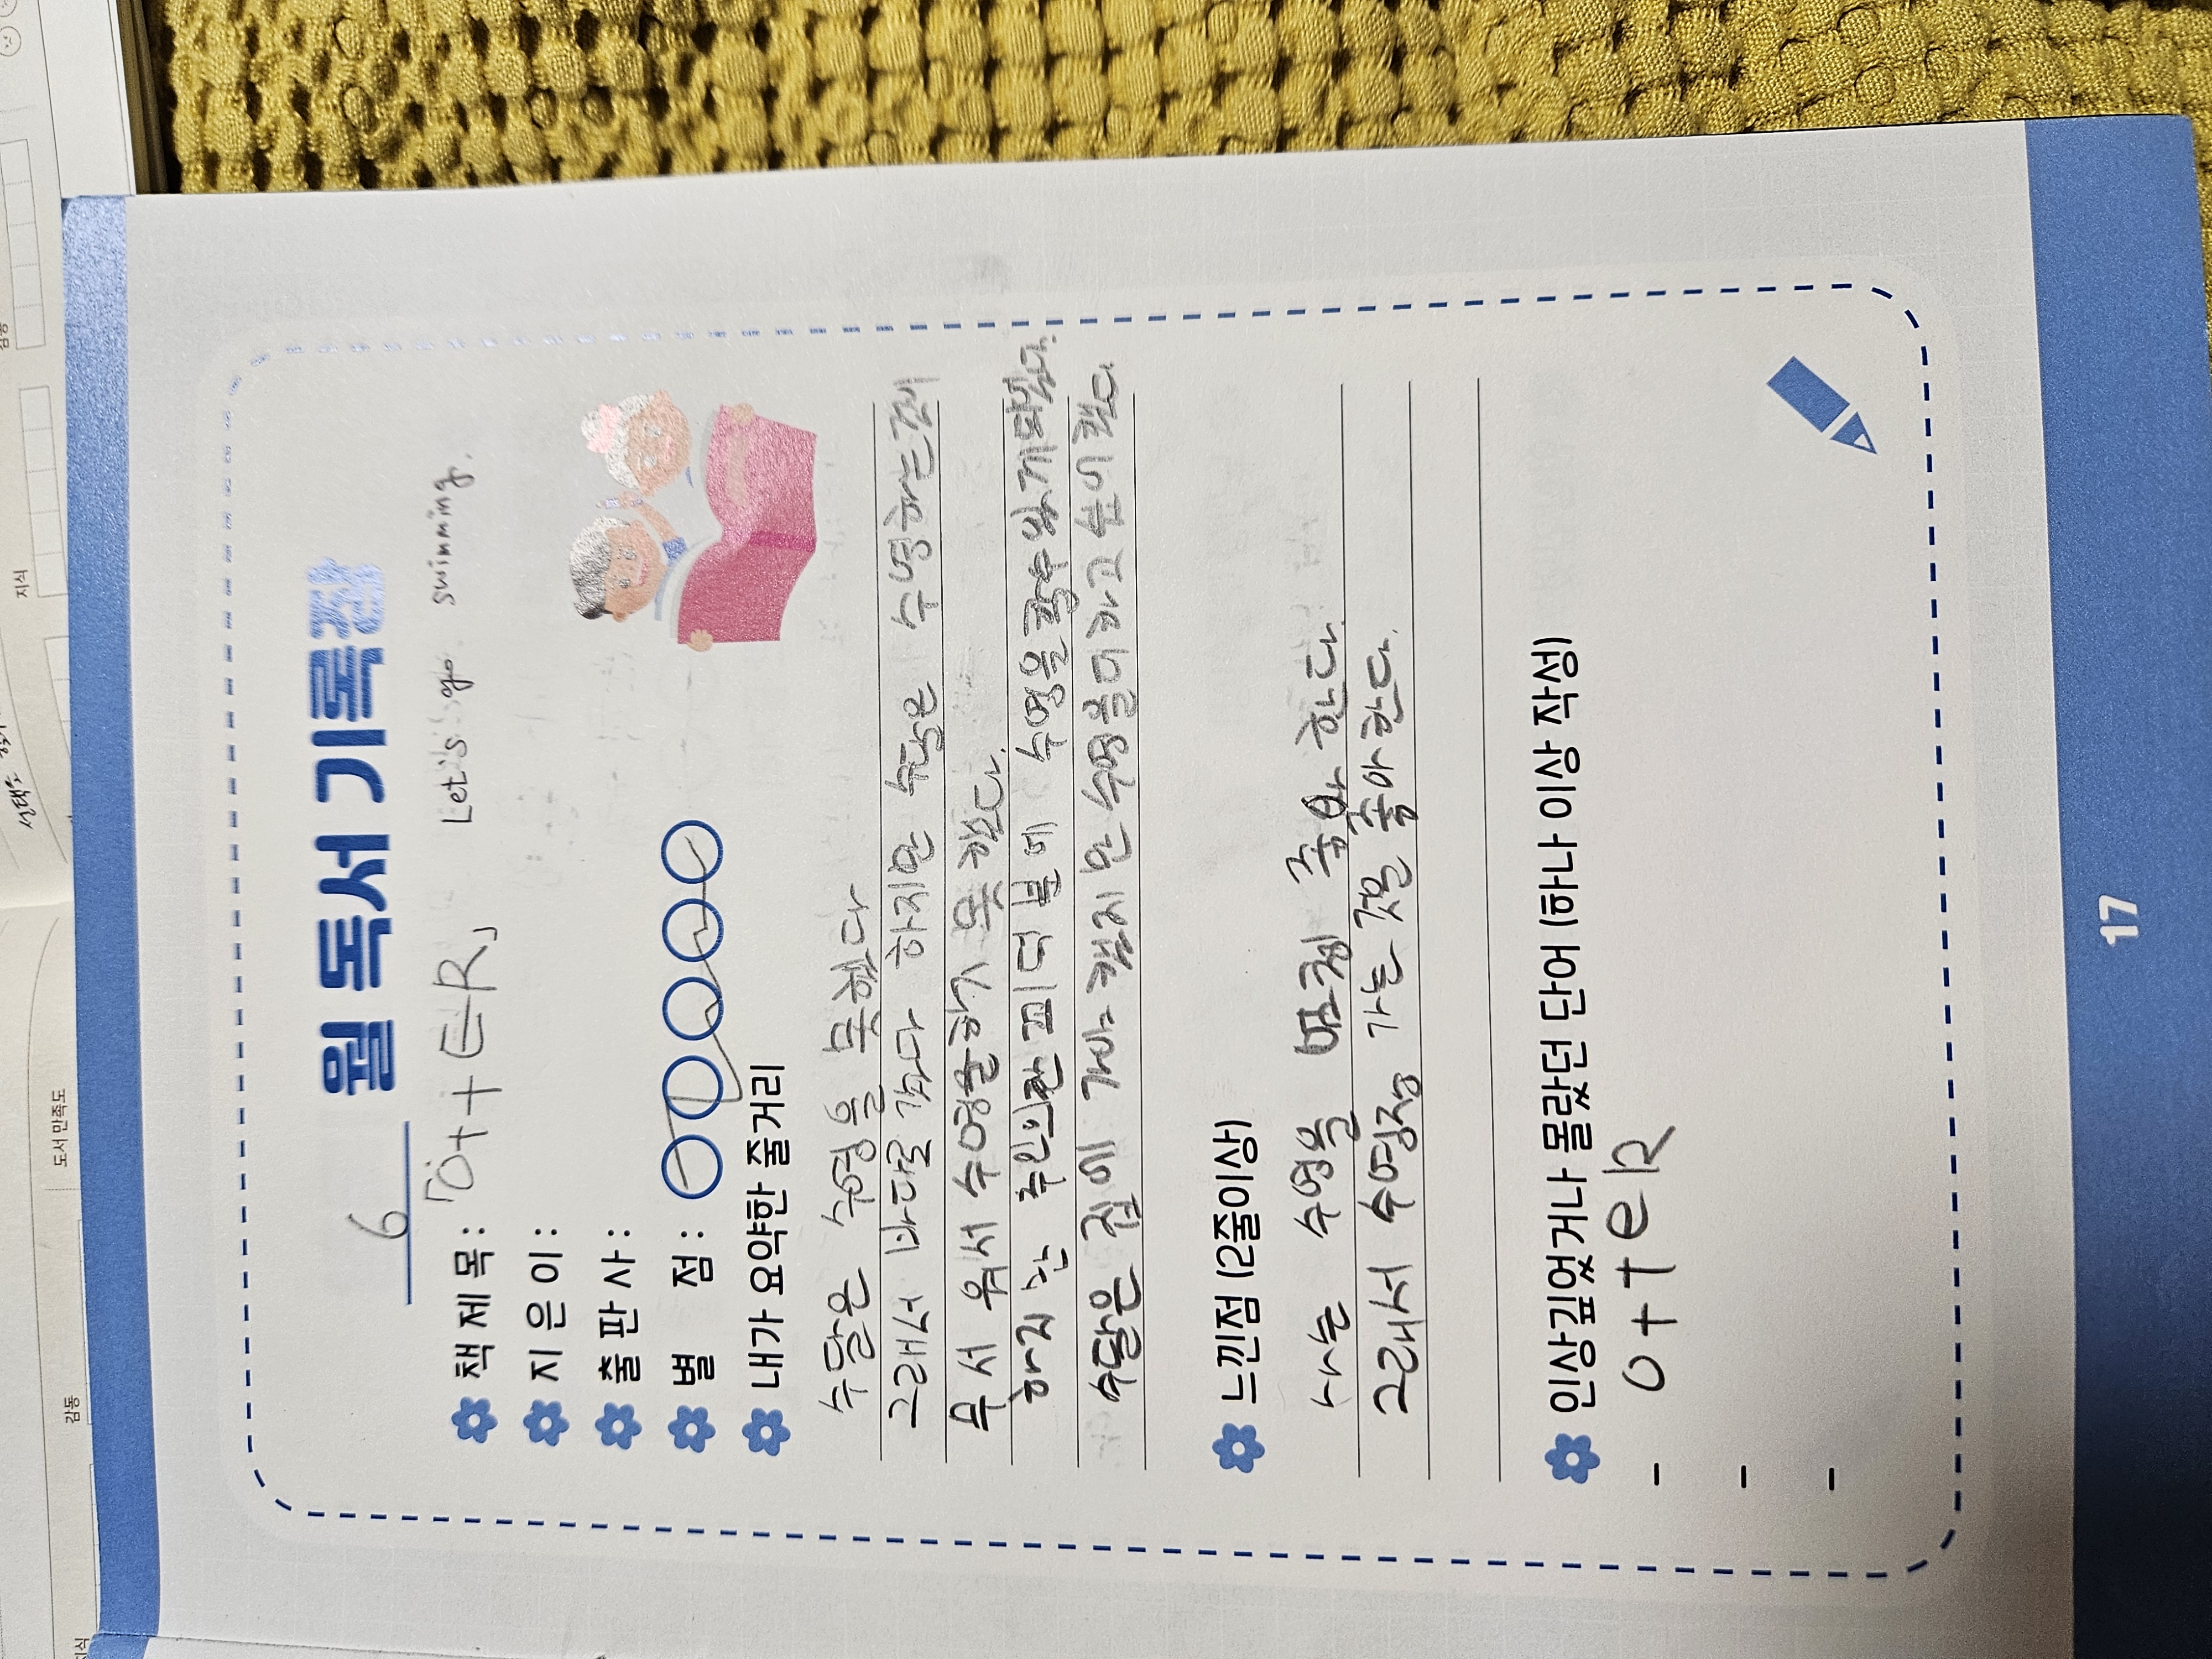 6 월 독서 기록장
책 제 목 : 「Ott ER」 Let's go swimming.
지 은 이 :
출 판 사 :
별 점 :
내가 요약한 줄거리
수달은 수영을 못해다
그래서 바다로 갔다 하지만 수달은 수영하는게
무서 워서 수영을하기 못 했다.
하지 만 주인의 때 수영을 할수 있게 되었다.
수달은 집에 수영흘더 하고 싶어 했다.
느낀점 (2줄이상)
나는 수영을 좋아 한다.
그래서 수영장 가는 것을 좋아 한다.
인상깊었거나 몰랐던 단어 (하나 이상 작성)
- otteR
-
-
17
도서 만족도
감동
지식
지식